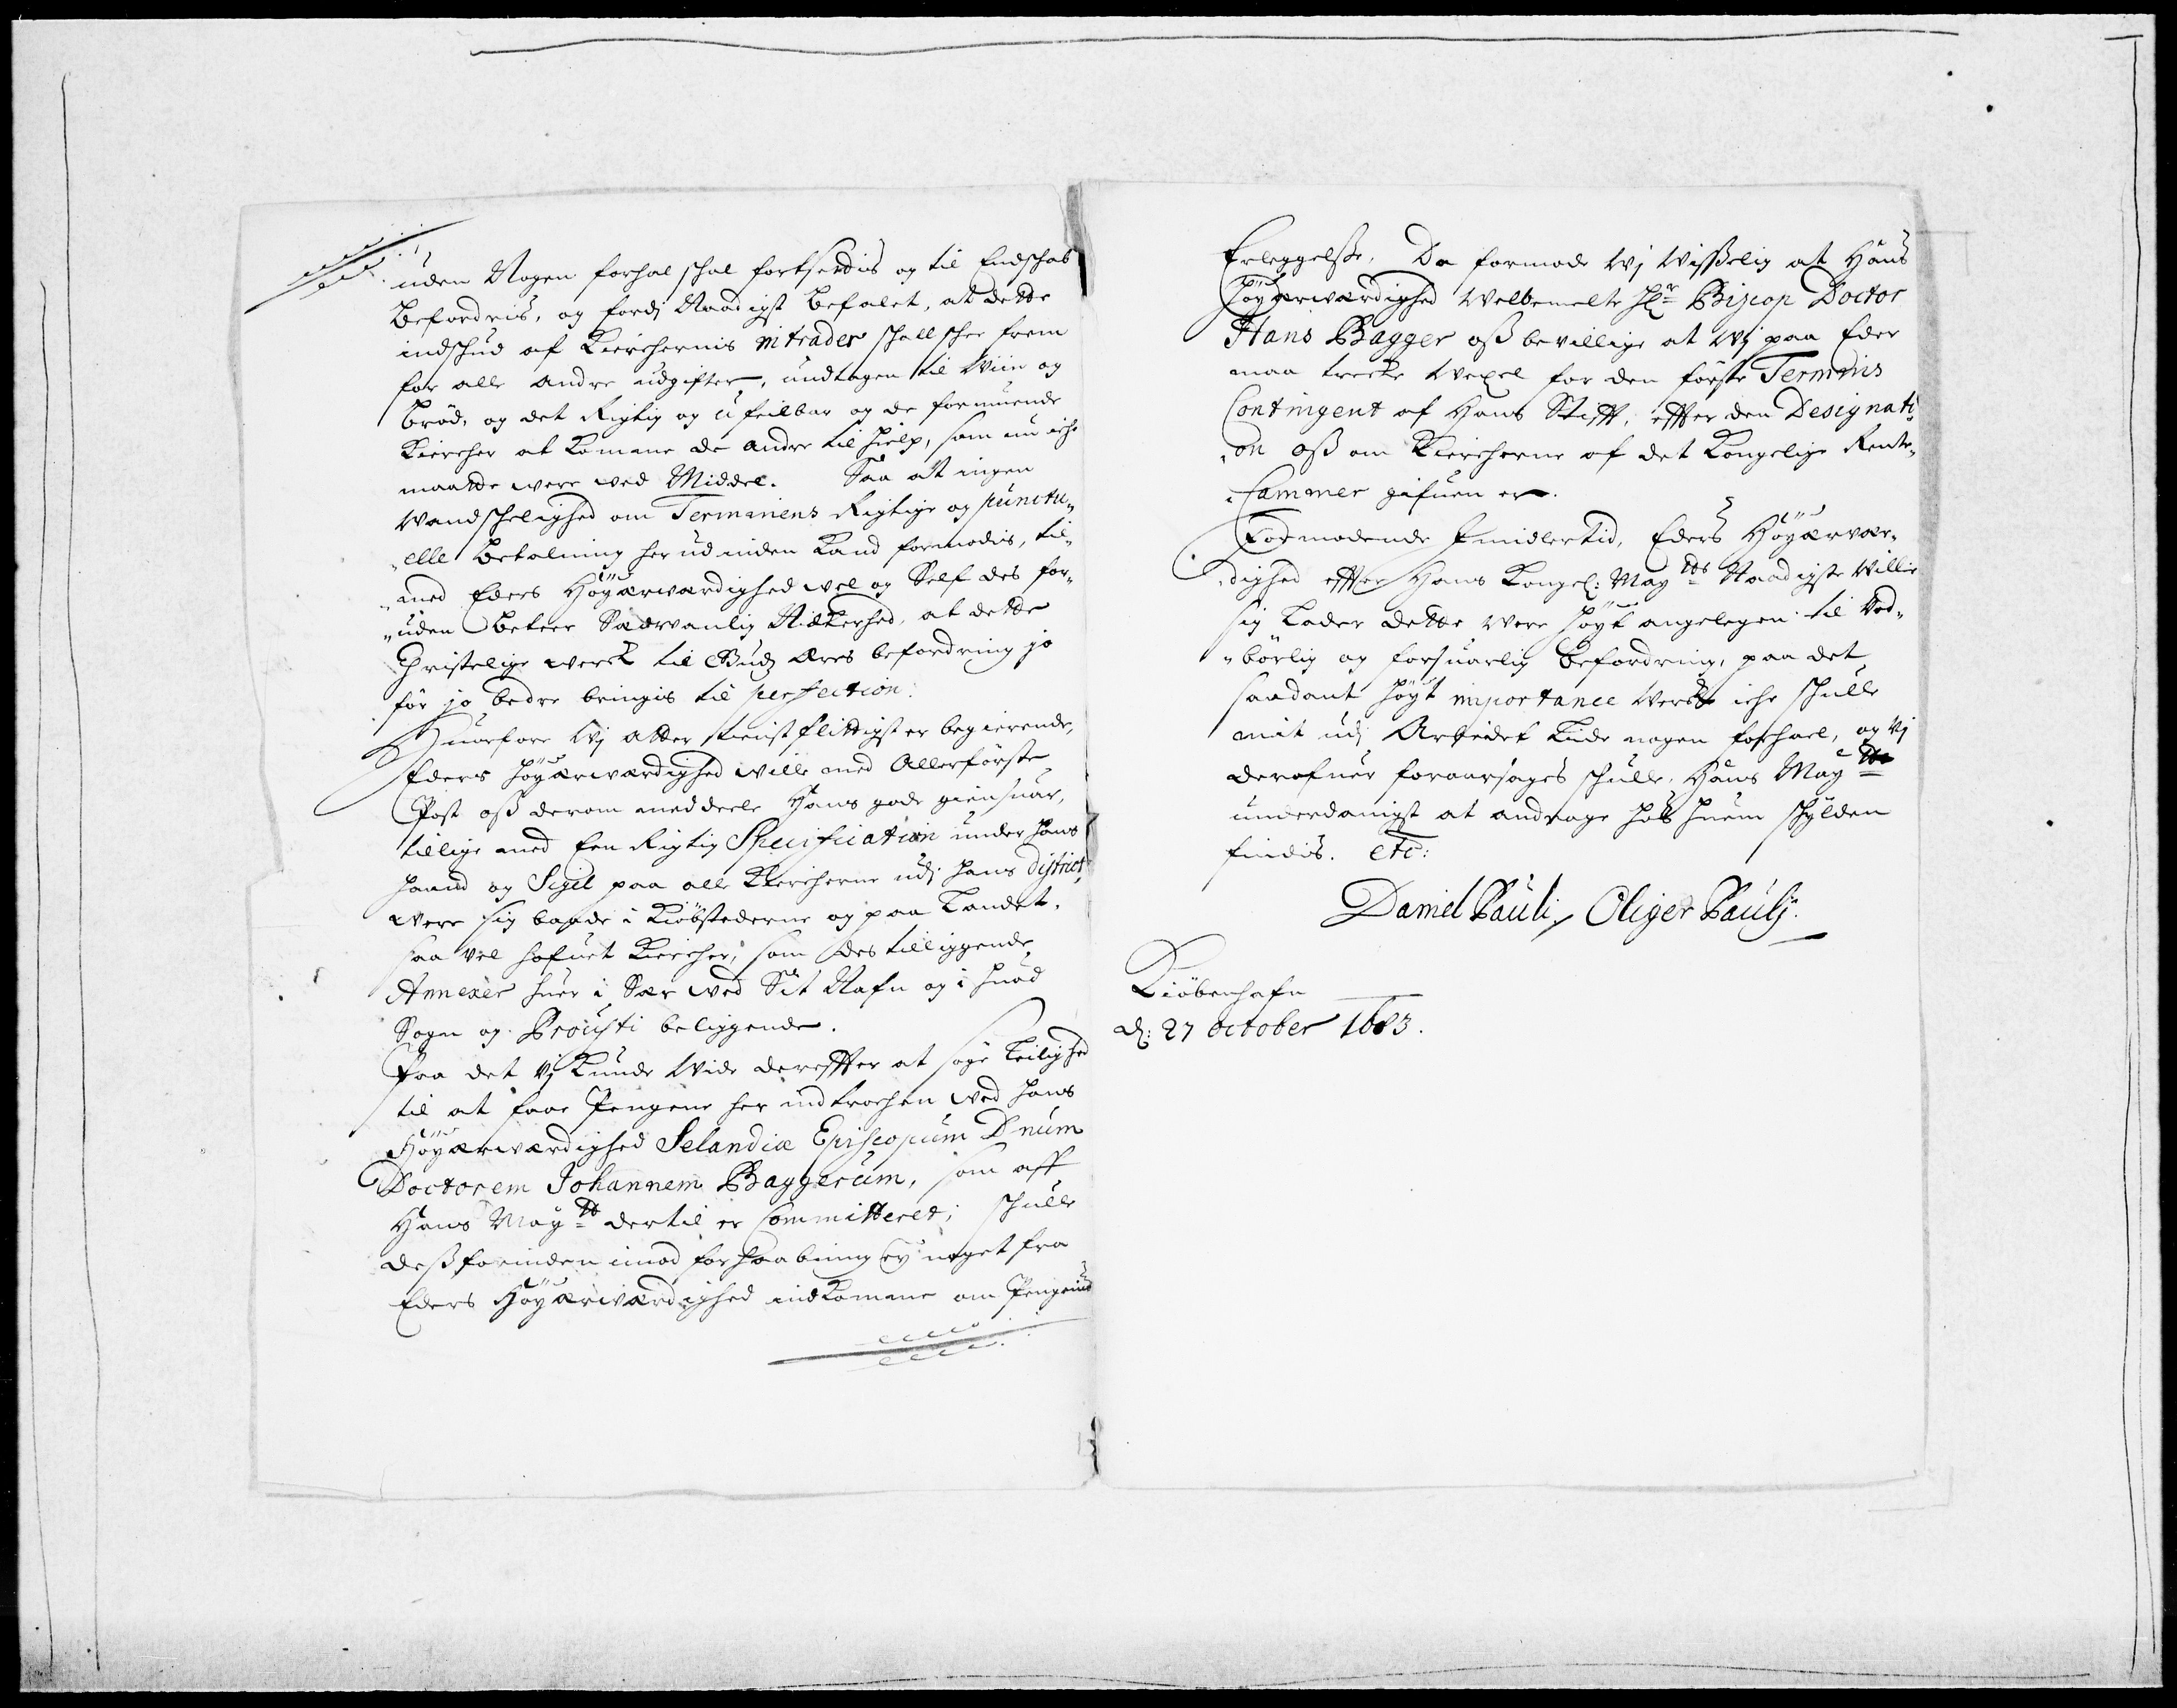 uden Nogen forhal schal fortsettis og til Endschab
befordris, og fordj Naadigst befalet, at dette
indschud af Kierchernis intrader schall schee frem
for alle andre udgifter, undtagen til Wiin og
brød, og det Rigtig og ufeilbar og de formuende
Kiercher at komme de andre til hielp, som nu iche
maatte were ved Middel. Saa att ingen
Vandschelighed om Terminens Rigtige og punctu„
„elle betalning her udinden kand formodis, til„
„med Eders Høyærværdighed vel og Self des for„
„uden beteer Sædvanlig Nidkerhed, at dette
Christelige werck til Guds æres befordring jo
før jo bedre bringis til perfection.
Huorfore Wj atter tienstflittigst er begierende,
Eders Høyærværdighed wille med Allerførste
Post oß derom meddeele Hans gode giensuar,
tillige med Een Rigtig Specification under hans
haand og Sigil paa alle Kiercherne udj hans district,
were sig baade i Kiøbstederne og paa Landet,
saa vel hofuet Kiercher, som des tilliggende
Annexer huer i Sær ved Sit Nafn og i huad
Sogn og Prousti beliggende.
Paa det Vj kunde Wide dereffter at søge Leilighed
til at faae Pengene her indtrochen ved hans
Høyærværdighed Selandiæ Episcopum Dnum
Doctorem Johannem Baggerum, som aff
Hans Maytt dertil er Committeret; schulle
deßforinden imod forhaabning ey noget fra
Eders Høyærværdighed indkomme om Pengenis
Erleggelße, Da formode Wj Wißelig at Hans
Høyærværdighed Welbemelte Hr Biscop Doctor
Hans Bagger oß bevillige at Wj paa Eder
maa trecke Vexel for den første Termins
Contingent af Hans Stifft, effter den Designati„
„on oß om Kiercherne af det Kongelige Rente„
„Cammer gifuen er.
Formodende Emidlertid, Eders Høyærvær„
„dighed effter Hans Kongel: Maytts Naadigste Willie
sig Lader dette were høyt angelegen til Ved„
„børlig og forsuarlig befordring, paa det
saadant høyt importance Verck iche schulle
mit udj Arbeidet Lide nogen forhael, og Vj
derofuer foraarsages schulle, Hans Maytt
underdanigst at andrage hos huem schylden
findis. etc:
Daniel Pauli, Oliger Paulj.
Kiøbenhafn
d: 27 october 1683.